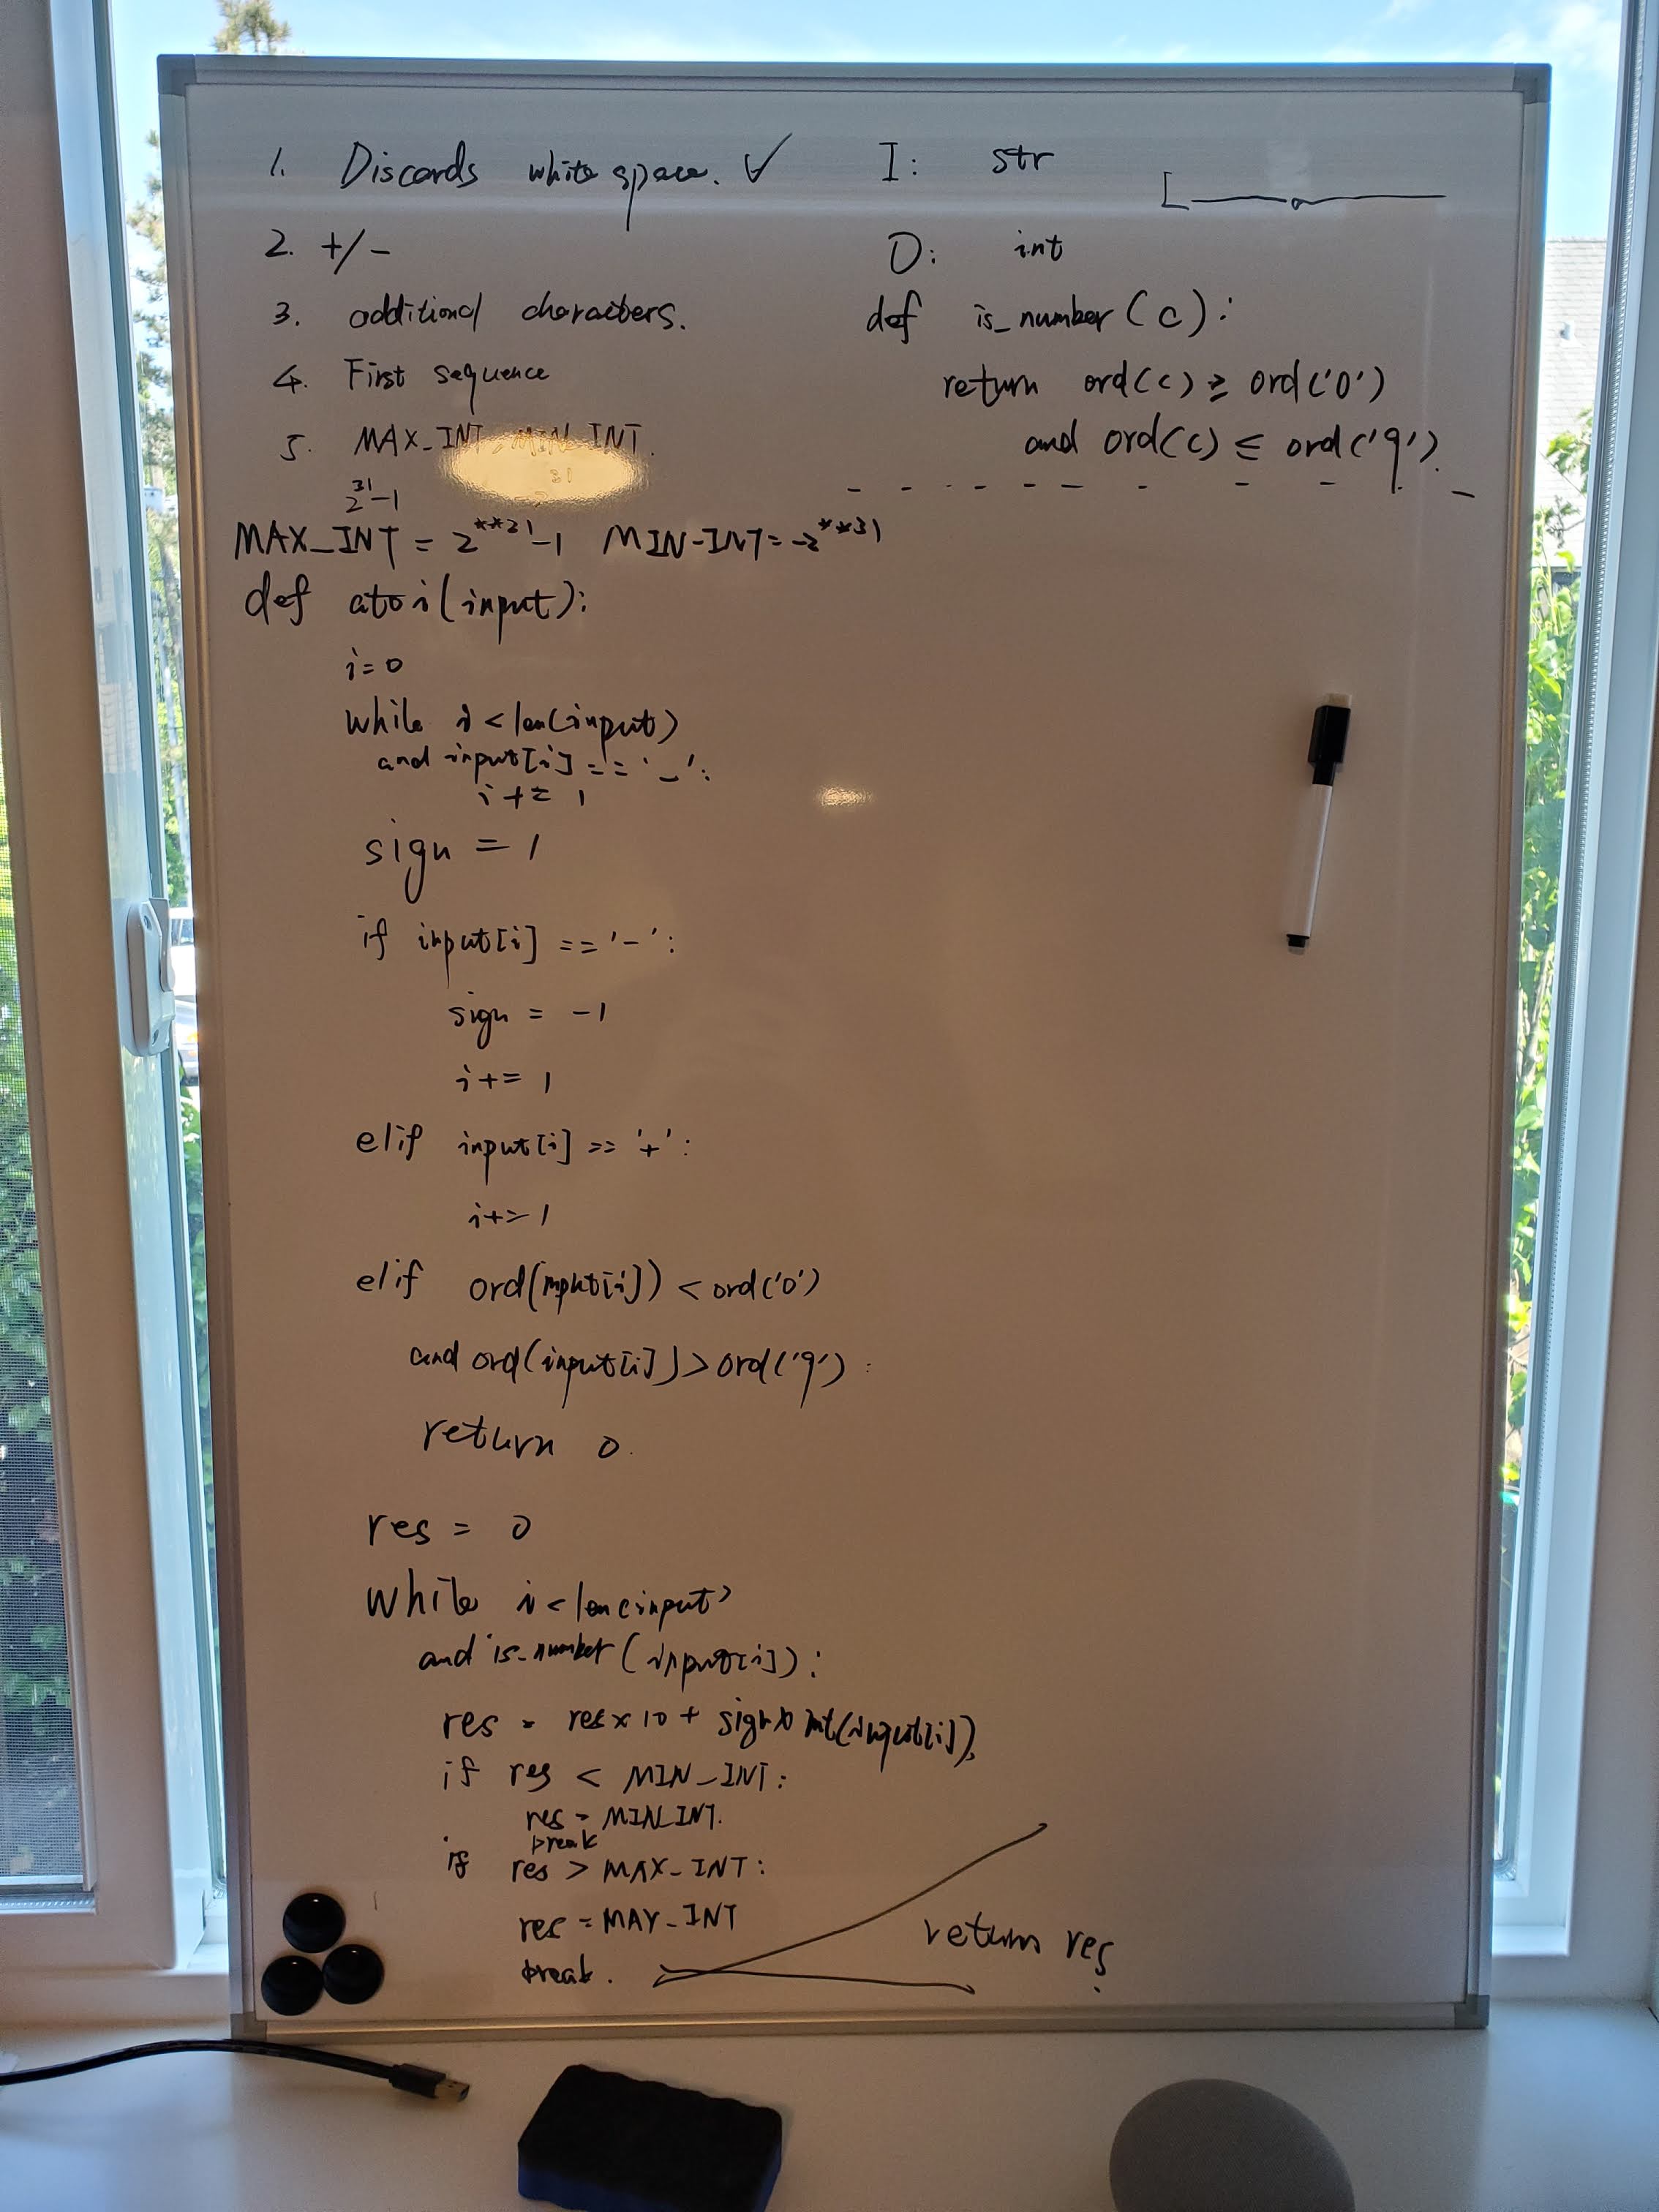 1. Discards white space. ✓
2. +/-
3. additional characters.
4. First sequence
5. MAX_INT, MIN_INT.
2^31-1
I: str
O: int
def is_number(c):
return ord(c) ≥ ord('0')
and ord(c) ≤ ord('9').
MAX_INT = 2**31-1 MIN-INT=-2**31
def atoi(input):
i=0
while i<len(input)
and input[i] == '_':
i += 1
sign = 1
if input[i] == '-':
sign = -1
i += 1
elif input[i] == '+':
i+=1
elif ord(input[i]) < ord('0')
and ord(input[i]) > ord('9'):
return 0.
res = 0
while i<len(input)
and is_number(input[i]):
res = res x 10 + sign x int(input[i]),
if res < MIN_INT:
res = MIN_INT.
break
if res > MAX_INT:
res = MAX_INT
break.
return res